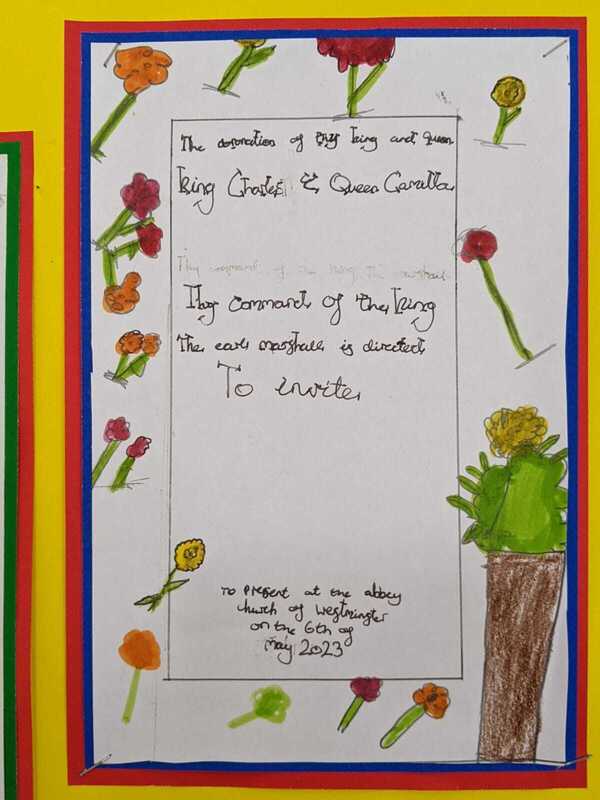 The coronation of thy king and queen
King Charles & Queen Camilla
Thy command of the king the marshall
Thy command of the king
The earl marshall is directed
To invite
To Present at the abbey
church of Westminster
on the 6th of
may 2023